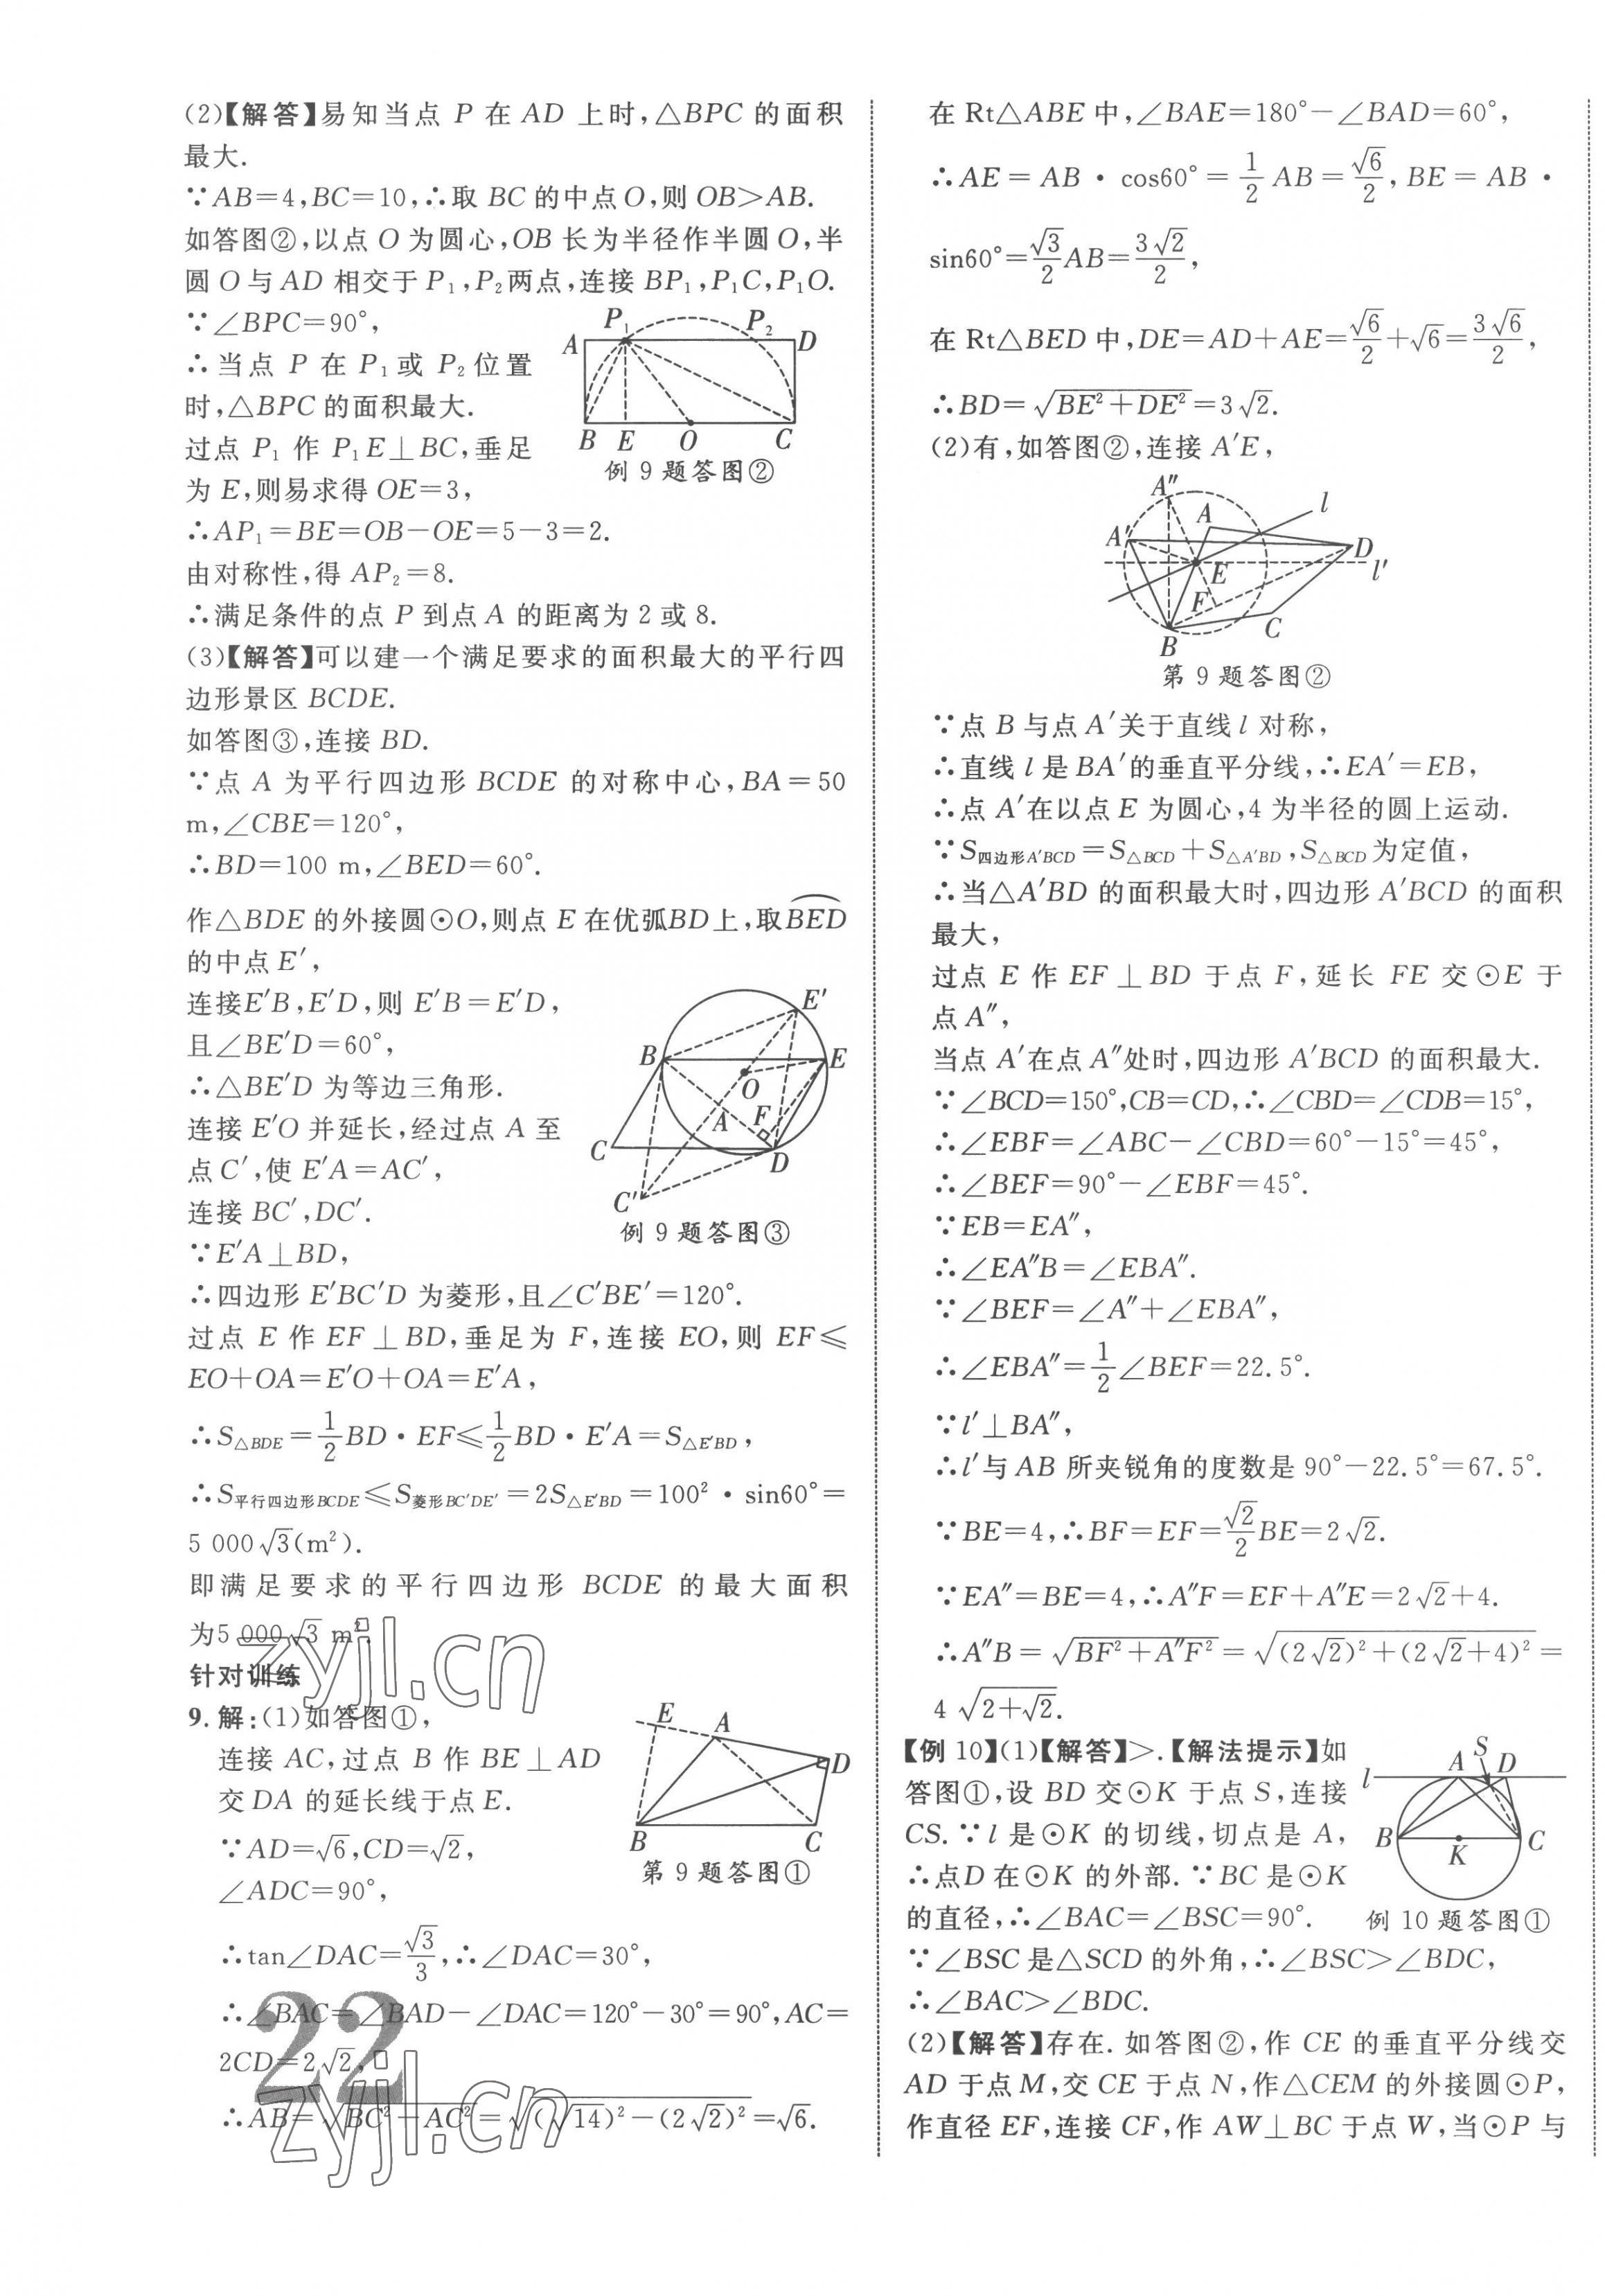 (2)【解答】易知当点 P 在 AD 上时,△BPC 的面积
最大.
∵AB=4,BC=10,∴取 BC 的中点O,则 OB>AB.
如答图②,以点 O 为圆心,OB 长为半径作半圆 O,半
圆 O 与 AD 相交于 P₁,P₂两点,连接 BP₁,P₁C,P₁O.
∵∠BPC=90°,
∴当点 P 在 P₁或 P₂位置
时,△BPC 的面积最大.
过点 P₁ 作 P₁E⊥BC,垂足
为 E,则易求得 OE=3,
A P₁ P₂ D
B E O C
例 9 题答图②
∴AP₁=BE=OB-OE=5-3=2.
由对称性,得 AP₂=8.
∴满足条件的点 P 到点 A 的距离为 2 或 8.
(3)【解答】可以建一个满足要求的面积最大的平行四
边形景区 BCDE.
如答图③,连接 BD.
∵点 A 为平行四边形 BCDE 的对称中心,BA=50
m,∠CBE=120°,
∴BD=100 m,∠BED=60°.
作△BDE 的外接圆⊙O,则点 E 在优弧BD上,取BED
的中点 E′,
连接E′B,E′D,则 E′B=E′D,
且∠BE′D=60°,
∴△BE′D 为等边三角形.
连接 E′O 并延长,经过点 A 至
点 C′,使 E′A=AC′,
连接 BC′,DC′.
∵E′A⊥BD,
E′
B E
O
A F
C D
C′
例 9 题答图③
∴四边形 E′BC′D 为菱形,且∠C′BE′=120°.
过点 E 作 EF⊥BD,垂足为 F,连接 EO,则 EF≤
EO+OA=E′O+OA=E′A,
∴S△BDE=1/2BD·EF≤1/2BD·E′A=S△E′BD,
∴S平行四边形BCDE≤S菱形BC′DE′=2S△E′BD=100²·sin60°=
5 000√3(m²).
即满足要求的平行四边形 BCDE 的最大面积
为5 000√3 m².
针对训练
9. 解:(1)如答图①,
连接 AC,过点 B 作 BE⊥AD
交 DA 的延长线于点 E.
∵AD=√6,CD=√2,
∠ADC=90°,
E A
D
B C
第 9 题答图①
∴tan∠DAC=√3/3,∴∠DAC=30°,
∴∠BAC=∠BAD-∠DAC=120°-30°=90°,AC=
2CD=2√2,
∴AB=√(BC²-AC²)=√((√14)²-(2√2)²)=√6.
22
zyjl.cn
zyjl.cn
在 Rt△ABE 中,∠BAE=180°-∠BAD=60°,
∴AE=AB·cos60°=1/2AB=√6/2,BE=AB·
sin60°=√3/2AB=3√2/2,
在 Rt△BED 中,DE=AD+AE=√6/2+√6=3√6/2,
∴BD=√(BE²+DE²)=3√2.
(2)有,如答图②,连接 A′E,
A″
A l
A′ D
E l′
F
B C
第 9 题答图②
∵点 B 与点 A′关于直线 l 对称,
∴直线 l 是 BA′的垂直平分线,∴EA′=EB,
∴点 A′在以点 E 为圆心,4 为半径的圆上运动.
∵S四边形A′BCD=S△BCD+S△A′BD,S△BCD为定值,
∴当△A′BD 的面积最大时,四边形 A′BCD 的面积
最大,
过点 E 作 EF⊥BD 于点 F,延长 FE 交⊙E 于
点 A″,
当点 A′在点 A″处时,四边形 A′BCD 的面积最大.
∵∠BCD=150°,CB=CD,∴∠CBD=∠CDB=15°,
∴∠EBF=∠ABC-∠CBD=60°-15°=45°,
∴∠BEF=90°-∠EBF=45°.
∵EB=EA″,
∴∠EA″B=∠EBA″.
∵∠BEF=∠A″+∠EBA″,
∴∠EBA″=1/2∠BEF=22.5°.
∵l′⊥BA″,
∴l′与 AB 所夹锐角的度数是 90°-22.5°=67.5°.
∵BE=4,∴BF=EF=√2/2BE=2√2.
∵EA″=BE=4,∴A″F=EF+A″E=2√2+4.
∴A″B=√(BF²+A″F²)=√((2√2)²+(2√2+4)²)=
4√(2+√2).
【例 10】(1)【解答】>.【解法提示】如
答图①,设 BD 交⊙K 于点 S,连接
CS.∵l 是⊙K 的切线,切点是 A,
∴点D 在⊙K 的外部.∵BC 是⊙K
的直径,∴∠BAC=∠BSC=90°.
l A S D
B K C
例 10 题答图①
∵∠BSC 是△SCD 的外角,∴∠BSC>∠BDC,
∴∠BAC>∠BDC.
(2)【解答】存在.如答图②,作 CE 的垂直平分线交
AD 于点 M,交 CE 于点 N,作△CEM 的外接圆⊙P,
作直径 EF,连接 CF,作 AW⊥BC 于点 W,当⊙P 与